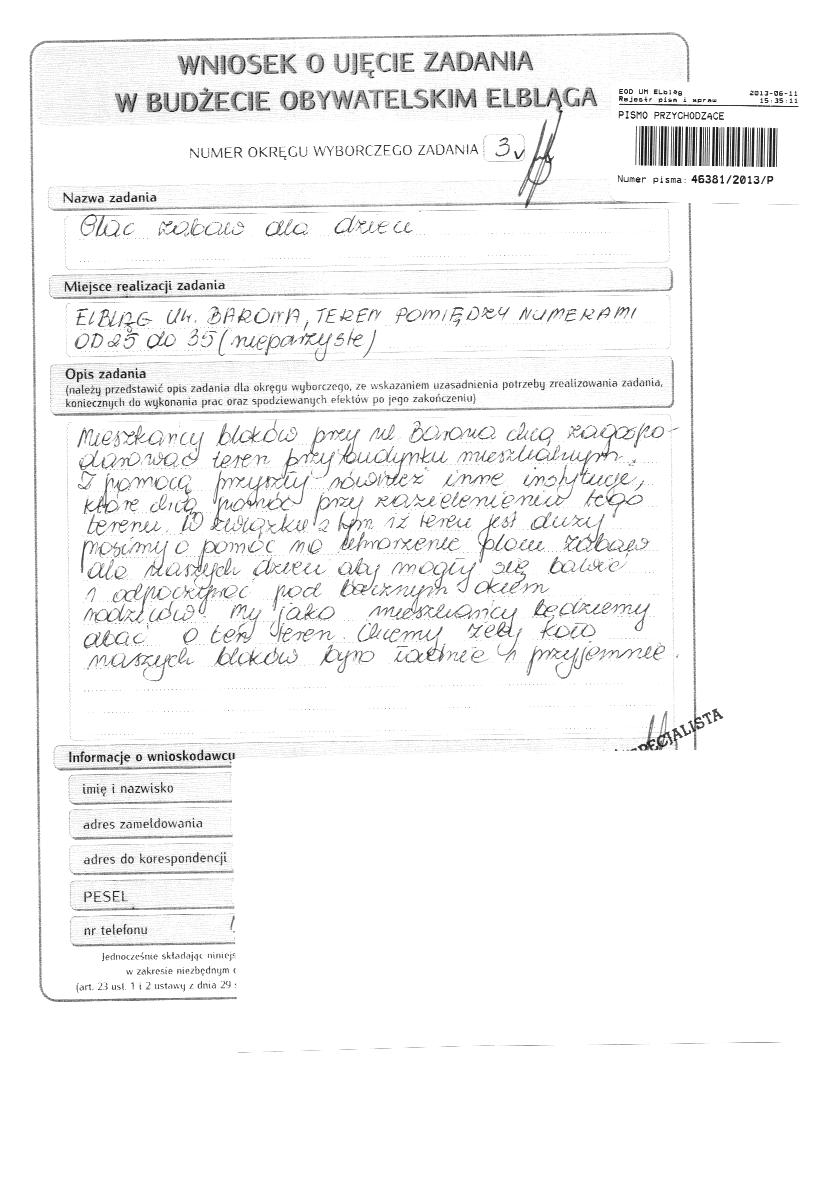 WNIOSEK O UJĘCIE ZADANIA
W BUDŻECIE OBYWATELSKIM ELBLĄGA
EOD UM Elbląg 2013-06-11
Rejestr pism i spraw 15:35:11
PISMO PRZYCHODZĄCE
Numer pisma: 46381/2013/P
NUMER OKRĘGU WYBORCZEGO ZADANIA 3
Nazwa zadania
Plac zabaw dla dzieci
Miejsce realizacji zadania
ELBLĄG UL. BARONA, TEREN POMIĘDZY NUMERAMI
OD 25 do 35 (nieparzyste)
Opis zadania
(należy przedstawić opis zadania dla okręgu wyborczego, ze wskazaniem uzasadnienia potrzeby zrealizowania zadania,
koniecznych do wykonania prac oraz spodziewanych efektów po jego zakończeniu)
Mieszkańcy bloków przy ul Barona chcą zagospo-
darować teren przy budynku mieszkalnym.
Z pomocą przyszły również inne instytucje,
które chcą pomóc przy zazielenieniu tego
terenu. W związku z tym iż teren jest duży
prosimy o pomoc na utworzenie placu zabaw
dla naszych dzieci aby mogły się bawić
i odpoczywać pod bacznym okiem
rodziców. My jako mieszkańcy będziemy
dbać o ten teren. Chcemy żeby koło
naszych bloków było ładnie i przyjemnie.
SPECJALISTA
Informacje o wnioskodawcu
imię i nazwisko
adres zameldowania
adres do korespondencji
PESEL
nr telefonu
Jednocześnie składając niniejs
w zakresie niezbędnym d
(art. 23 ust. 1 i 2 ustawy z dnia 29 s